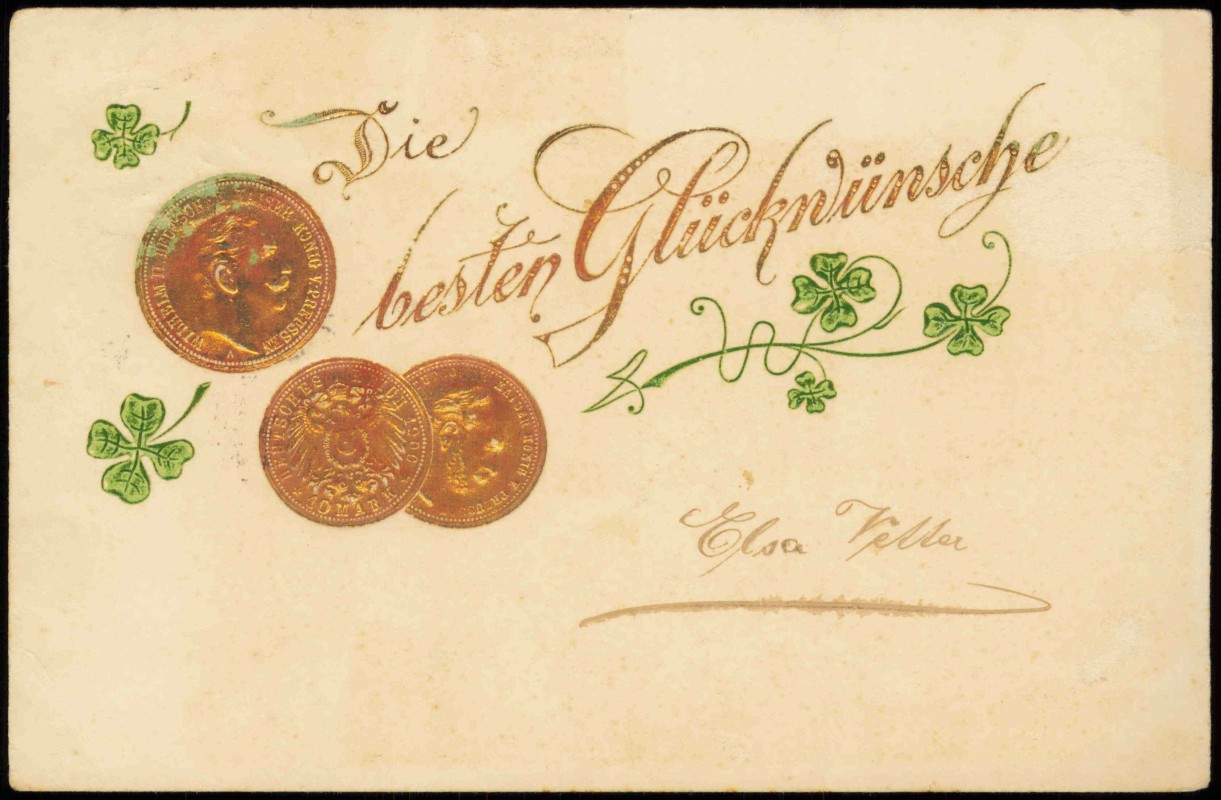 Die
besten Glückwünsche
WILHELM II DEUTSCHER KAISER KÖNIG V. PREUSSEN
A
DEUTSCHES REICH 1900
20 MARK
KAISER KÖNIG V. PR
Elsa Vetter